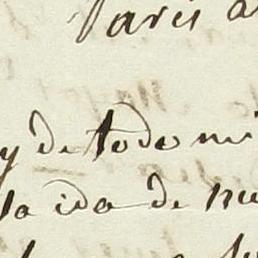 Paris a
y de todo mi
la ida de nu